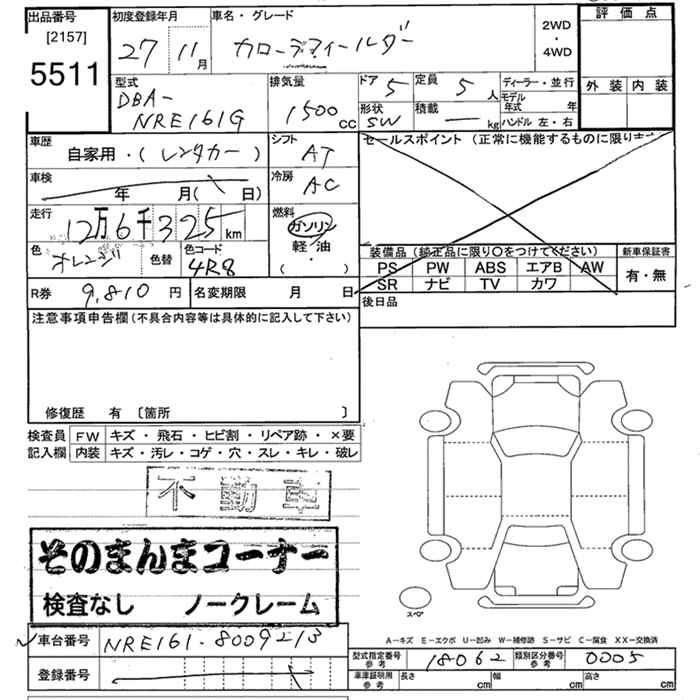 出品番号
[2157]
5511
初度登録年月
27 11月
車名・グレード
カローラフィールダー
2WD
・
4WD
評価点
外装 内装
型式
DBA-
NRE161G
排気量
1500cc
ドア 5
定員 5人
形状 SW
積載 — kg
ディーラー・並行
モデル年式 年
ハンドル 左・右
車歴
自家用・(レンタカー)
シフト
AT
セールスポイント (正常に機能するものに限ります)
車検
年 月( 日)
冷房
AC
走行
12万6千325km
燃料
ガソリン
軽・油
・
( )
色
オレンジ
色替
色コード
4R8
装備品 (純正品に限り〇をつけてください)
PS PW ABS エアB AW
SR ナビ TV カワ
新車保証書
有・無
R券 9,810円
名変期限 月 日
後日品
注意事項申告欄(不具合内容等は具体的に記入して下さい)
修復歴 有 〔箇所 〕
検査員 FW キズ・飛石・ヒビ割・リペア跡・×要
記入欄 内装 キズ・汚レ・コゲ・穴・スレ・キレ・破レ
不動車
そのまんまコーナー
検査なし ノークレーム
スペア
A-キズ E-エクボ U-凹み W-補修跡 S-サビ C-腐食 XX-交換済
車台番号 NRE161-8009213
登録番号
型式指定番号 参考 18062
類別区分番号 参考 0005
車庫証明用 参考 長さ cm 幅 cm 高さ cm